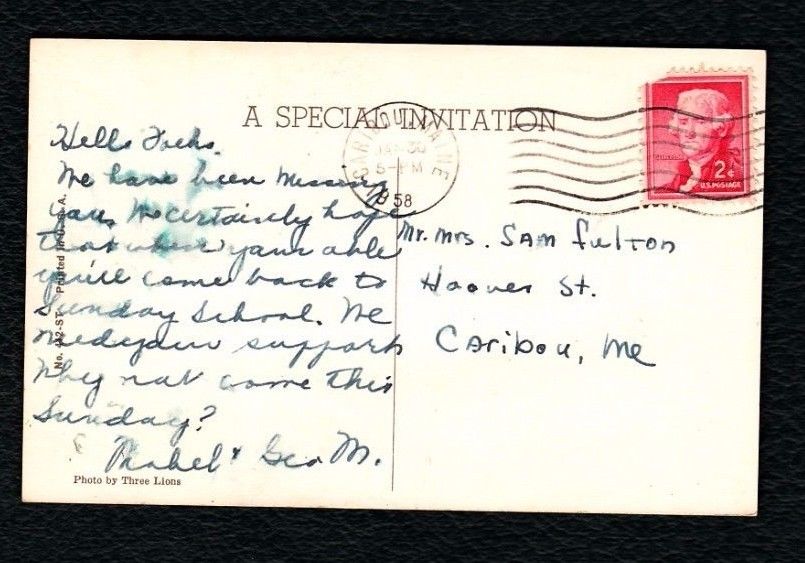 A SPECIAL INVITATION
CARIBOU, MAINE
30
5-PM
1958
2¢
U.S. POSTAGE
Hello Folks,
We have been missing
you, We certainly hope
that when your able
you'll come back to
Sunday School. We
need your support
Why not come this
Sunday?
Mabel & Geo M.
Mr. Mrs. Sam Fulton
Hoover St.
Caribou, Me
Printed in U.S.A.
Photo by Three Lions